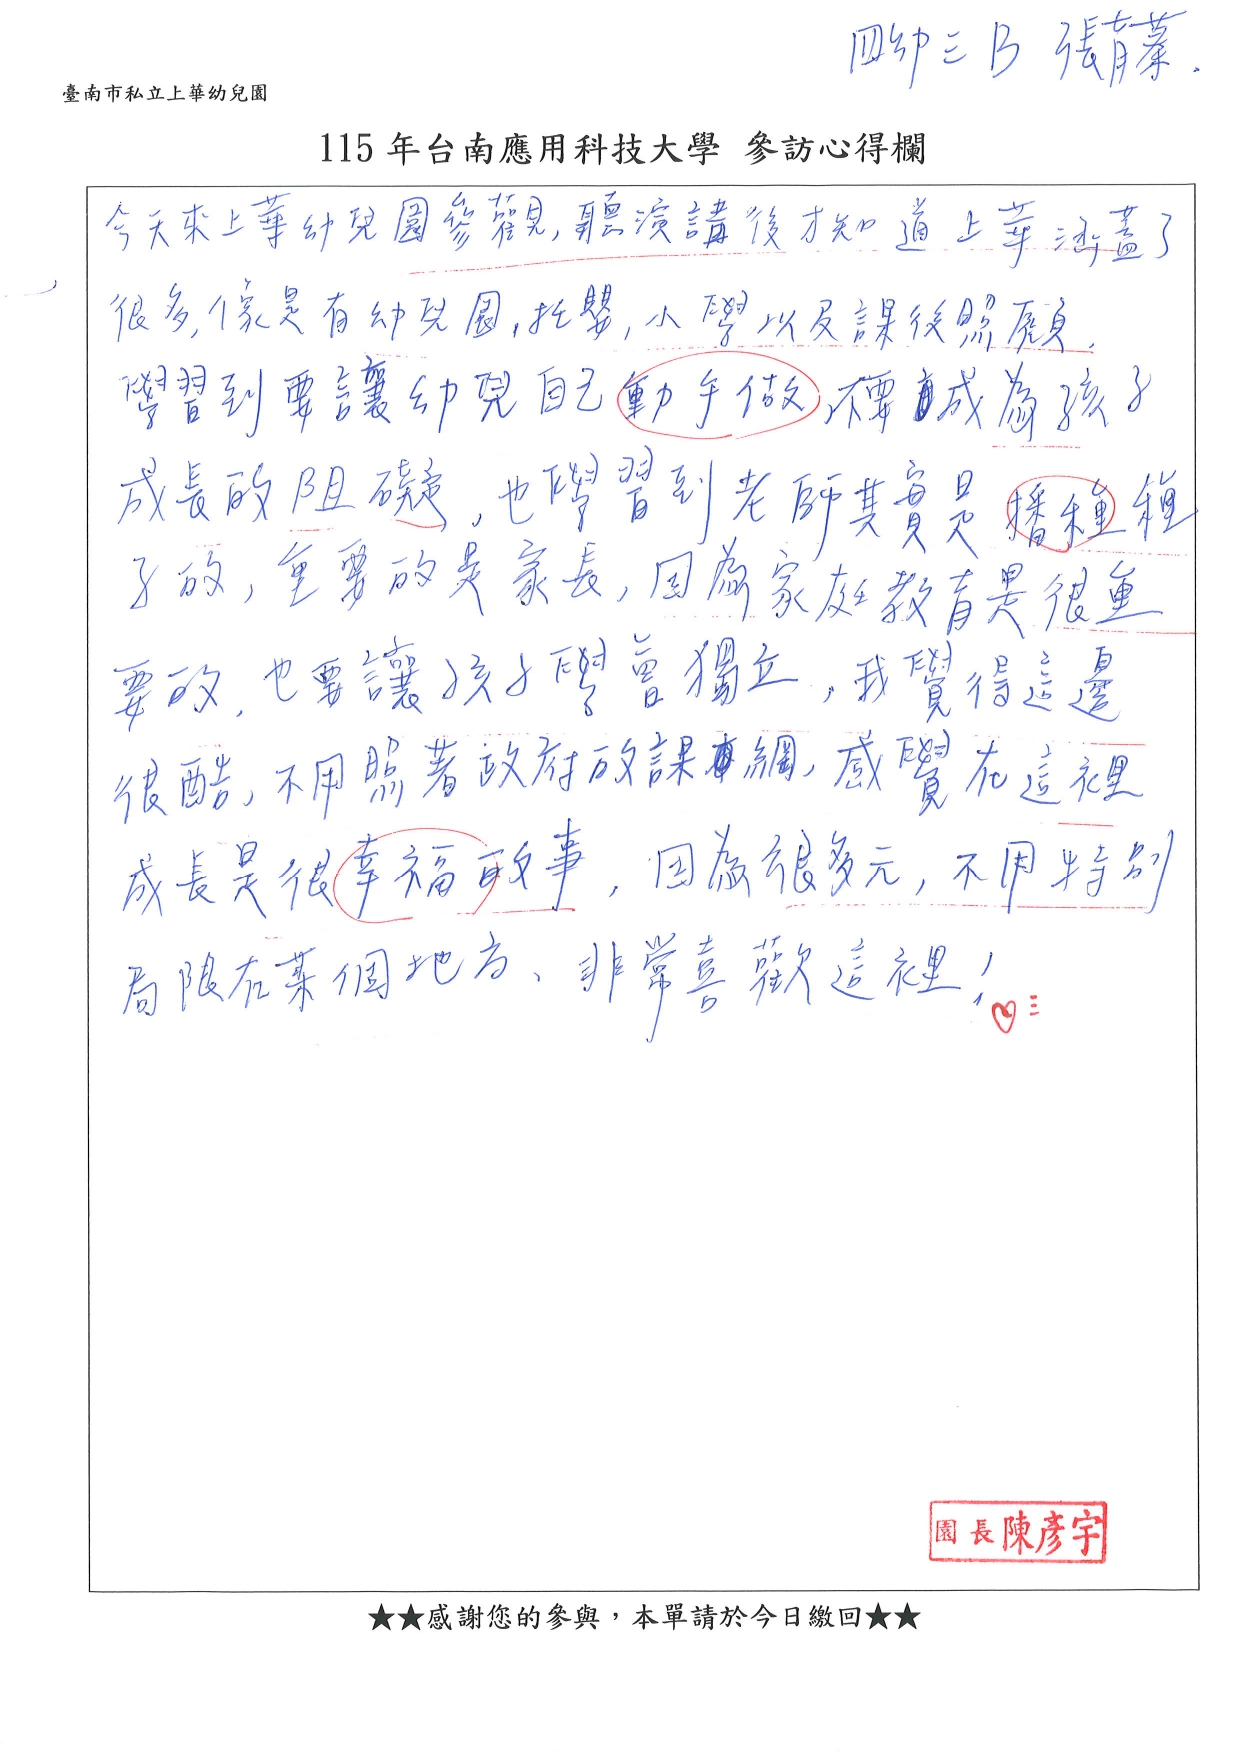 四幼三B 張育蓁.
臺南市私立上華幼兒園
115 年台南應用科技大學 參訪心得欄
今天來上華幼兒園參觀,聽演講後才知道上華涵蓋了
很多,像是有幼兒園,托嬰,小學以及課後照顧.
學習到要讓幼兒自己動手做,不要成為孩子
成長的阻礙,也學習到老師其實是播種種
子的,重要的是家長,因為家庭教育是很重
要的,也要讓孩子學會獨立,我覺得這邊
很酷,不用照著政府的課綱,感覺在這裡
成長是很幸福的事,因為很多元,不用特別
局限在某個地方、非常喜歡這裡!
園長 陳彥宇
★★感謝您的參與,本單請於今日繳回★★